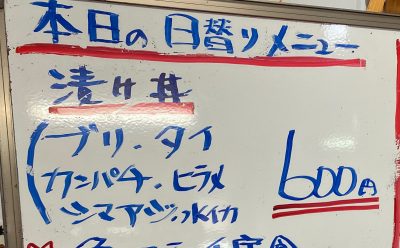 本日の日替りメニュー
漬け丼
(ブリ・タイ
カンパチ・ヒラメ
シマアジ・水イカ
600円